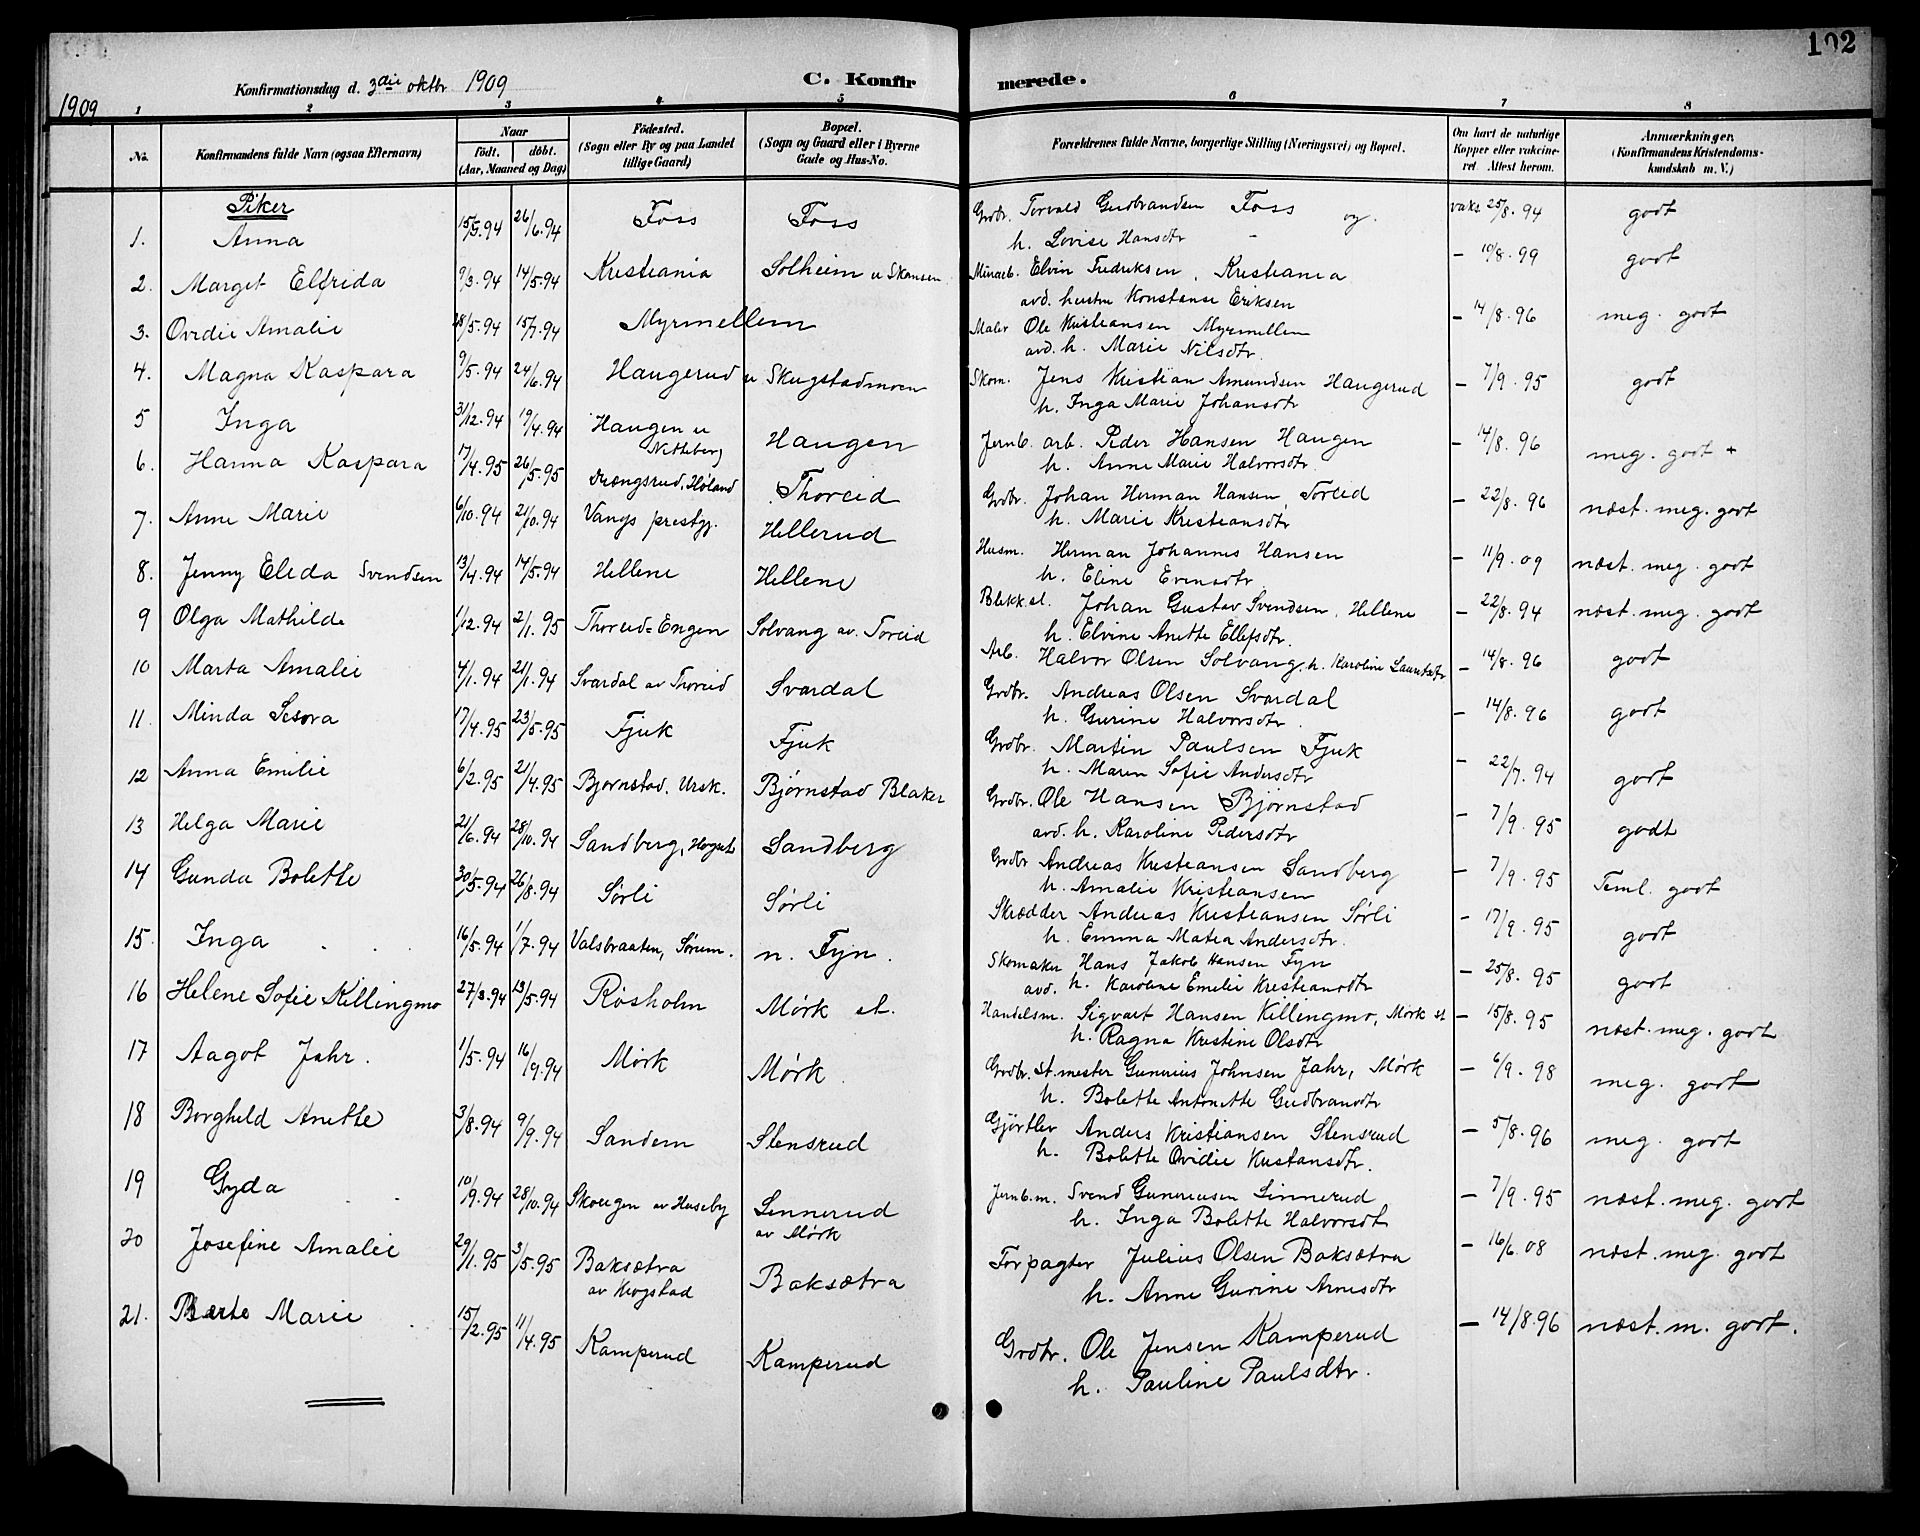 102
Konfirmationsdag d. 3die oktbr 1909
C. Konfirmerede.
1909
1 2 3 4 5 6 7 8
No. Konfirmandens fulde Navn (ogsaa Efternavn) Naar födt. döbt. (Aar, Maaned og Dag) Födested. (Sogn eller By og paa Landet tillige Gaard) Bopæl. (Sogn og Gaard eller i Byerne Gade og Hus-No. Forældrenes fulde Navne, borgerlige Stilling (Næringsvei) og Bopæl. Om havt de naturlige Kopper eller vaccineret. Attest herom. Anmærkninger. (Konfirmandens Kristendomskundskab m. V.)
Piker
1. Anna 15/5.94 26/6.94 Foss Foss Grdbr. Torvald Gudbrandsen Foss og vaks 25/8.94 godt
h. Lovise Hansdtr
2. Marget Elfrida 9/3.94 14/5.94 Kristiania Solheim u Skansen Minarb. Elvin Fredriksen, Kristiania - 10/8.99 godt
avd. hustru Konstanse Eriksen
3. Ovidie Amalie 28/5.94 15/7.94 Myrmellem Maler Ole Kristiansen Myrmellem - 14/8.96 meg. godt
avd. h. Marie Nilsdtr.
4. Magna Kaspara 9/5.94 24/6.94 Haugerud u Skugstadmoen Skom. Jens Kristian Amundsen Haugerud - 7/9.95 godt
h. Inga Marie Johansdtr
5 Inga 31/12.94 19/4.94 Haugen u Netteberg Haugen Jernb. arb. Peder Hansen Haugen - 14/8.96 meg. godt +
h. Anne Marie Halvorsdtr
6. Hanna Kaspara 17/4.95 26/5.95 Drængsrud, Høland Thoreid Grdbr. Johan Herman Hansen Toreid - 22/8.96 næst. meg. godt
h. Marie Kristiansdtr
7. Anne Marie 6/10.94 21/0.94 Vangs prestgj. Hellerud Husm. Herman Johannes Hansen - 11/9.09 næst. meg. godt
h. Eline Evensdtr
8. Jenny Elida Svendsen 13/4.94 14/5.94 Hellene Hellene Blekksl. Johan Gustav Svendsen, Hellene - 22/8.94 næst. meg. godt
h. Elvine Anette Ellefsdtr.
9 Olga Mathilde 1/12.94 2/1.95 Thoreid-Engen Solvang av Toreid Arb. Halvor Olsen Solvang, h. Karoline Lauritsdtr - 14/8.96 godt
10 Marta Amalie 4/1.94 21/1.94 Svardal av Thoreid Svardal Grdbr. Andreas Olsen Svardal - 14/8.96 godt
h. Gurine Halvorsdtr.
11. Minda Sesora 17/4.95 23/5.95 Fjuk Fjuk Grdbr. Martin Paulsen Fjuk - 22/7.94 godt
h. Maren Sofie Andersdtr
12 Anna Emilie 6/2.95 21/4.95 Bjørnstad, Ursk. Bjørnstad Blaker Grdbr. Ole Hansen Bjørnstad - 7/9.95 godt
avd. h. Karoline Pedersdtr
13 Helga Marie 21/6.94 28/10.94 Sandberg, Sandberg Grdbr Andreas Kristiansen Sandberg - 7/9.95 Teml. godt
h. Amalie Kristiansen
14 Gunda Bolette 30/5.94 26/8.94 Sørli Sørli Skrædder Andreas Kristiansen Sørli - 17/9.95 godt
h. Emma Matea Andersdtr.
15. Inga 16/5.94 1/7.94 Valsbraaten, Sørum. n. Fyn. Skomaker Hans Jakob Hansen Fyn - 25/8.95 godt
avd. h. Karoline Emelie Kristiansdtr
16 Helene Sofie Killingmo 27/3.94 13/5.94 Røsholm Mørk st. Handelsm. Sigvart Hansen Killingmo, Mørk st - 15/8.95 næst. meg. godt
h. Ragna Kristine Olsdtr
17 Aagot Jahr. 1/5.94 16/9.94 Mørk Mørk Grdbr. st. mester Gunerius Johnsen Jahr, Mørk - 6/9.98 meg. godt
h. Bolette Antonette Gudbransdtr
18 Borghild Anette 3/8.94 9/9.94 Sandem Stensrud Gjørtler Anders Kristiansen Stensrud - 5/8.96 meg. godt
h. Bolette Ovidie Kristansdtr.
19 Gyda 10/9.94 28/10.94 Skougen av Huseby Linnerud av Mørk Jernb.m. Svend Gunerusen Linnerud - 7/9.95 næst. meg. godt
h. Inga Bolette Halvorsdt
20 Josefine Amalie 29/1.95 3/5.95 Baksætra av Krogstad Baksætra Forpagter Julius Olsen Baksætra - 16/6.08 næst. meg. godt
h. Anne Gurine Arnesdtr
21. Berte Marie 15/2.95 11/4.95 Kamperud Kamperud Grdbr. Ole Jensen Kamperud - 14/8.96 næst. m. godt.
h. Pauline Paulsdtr.